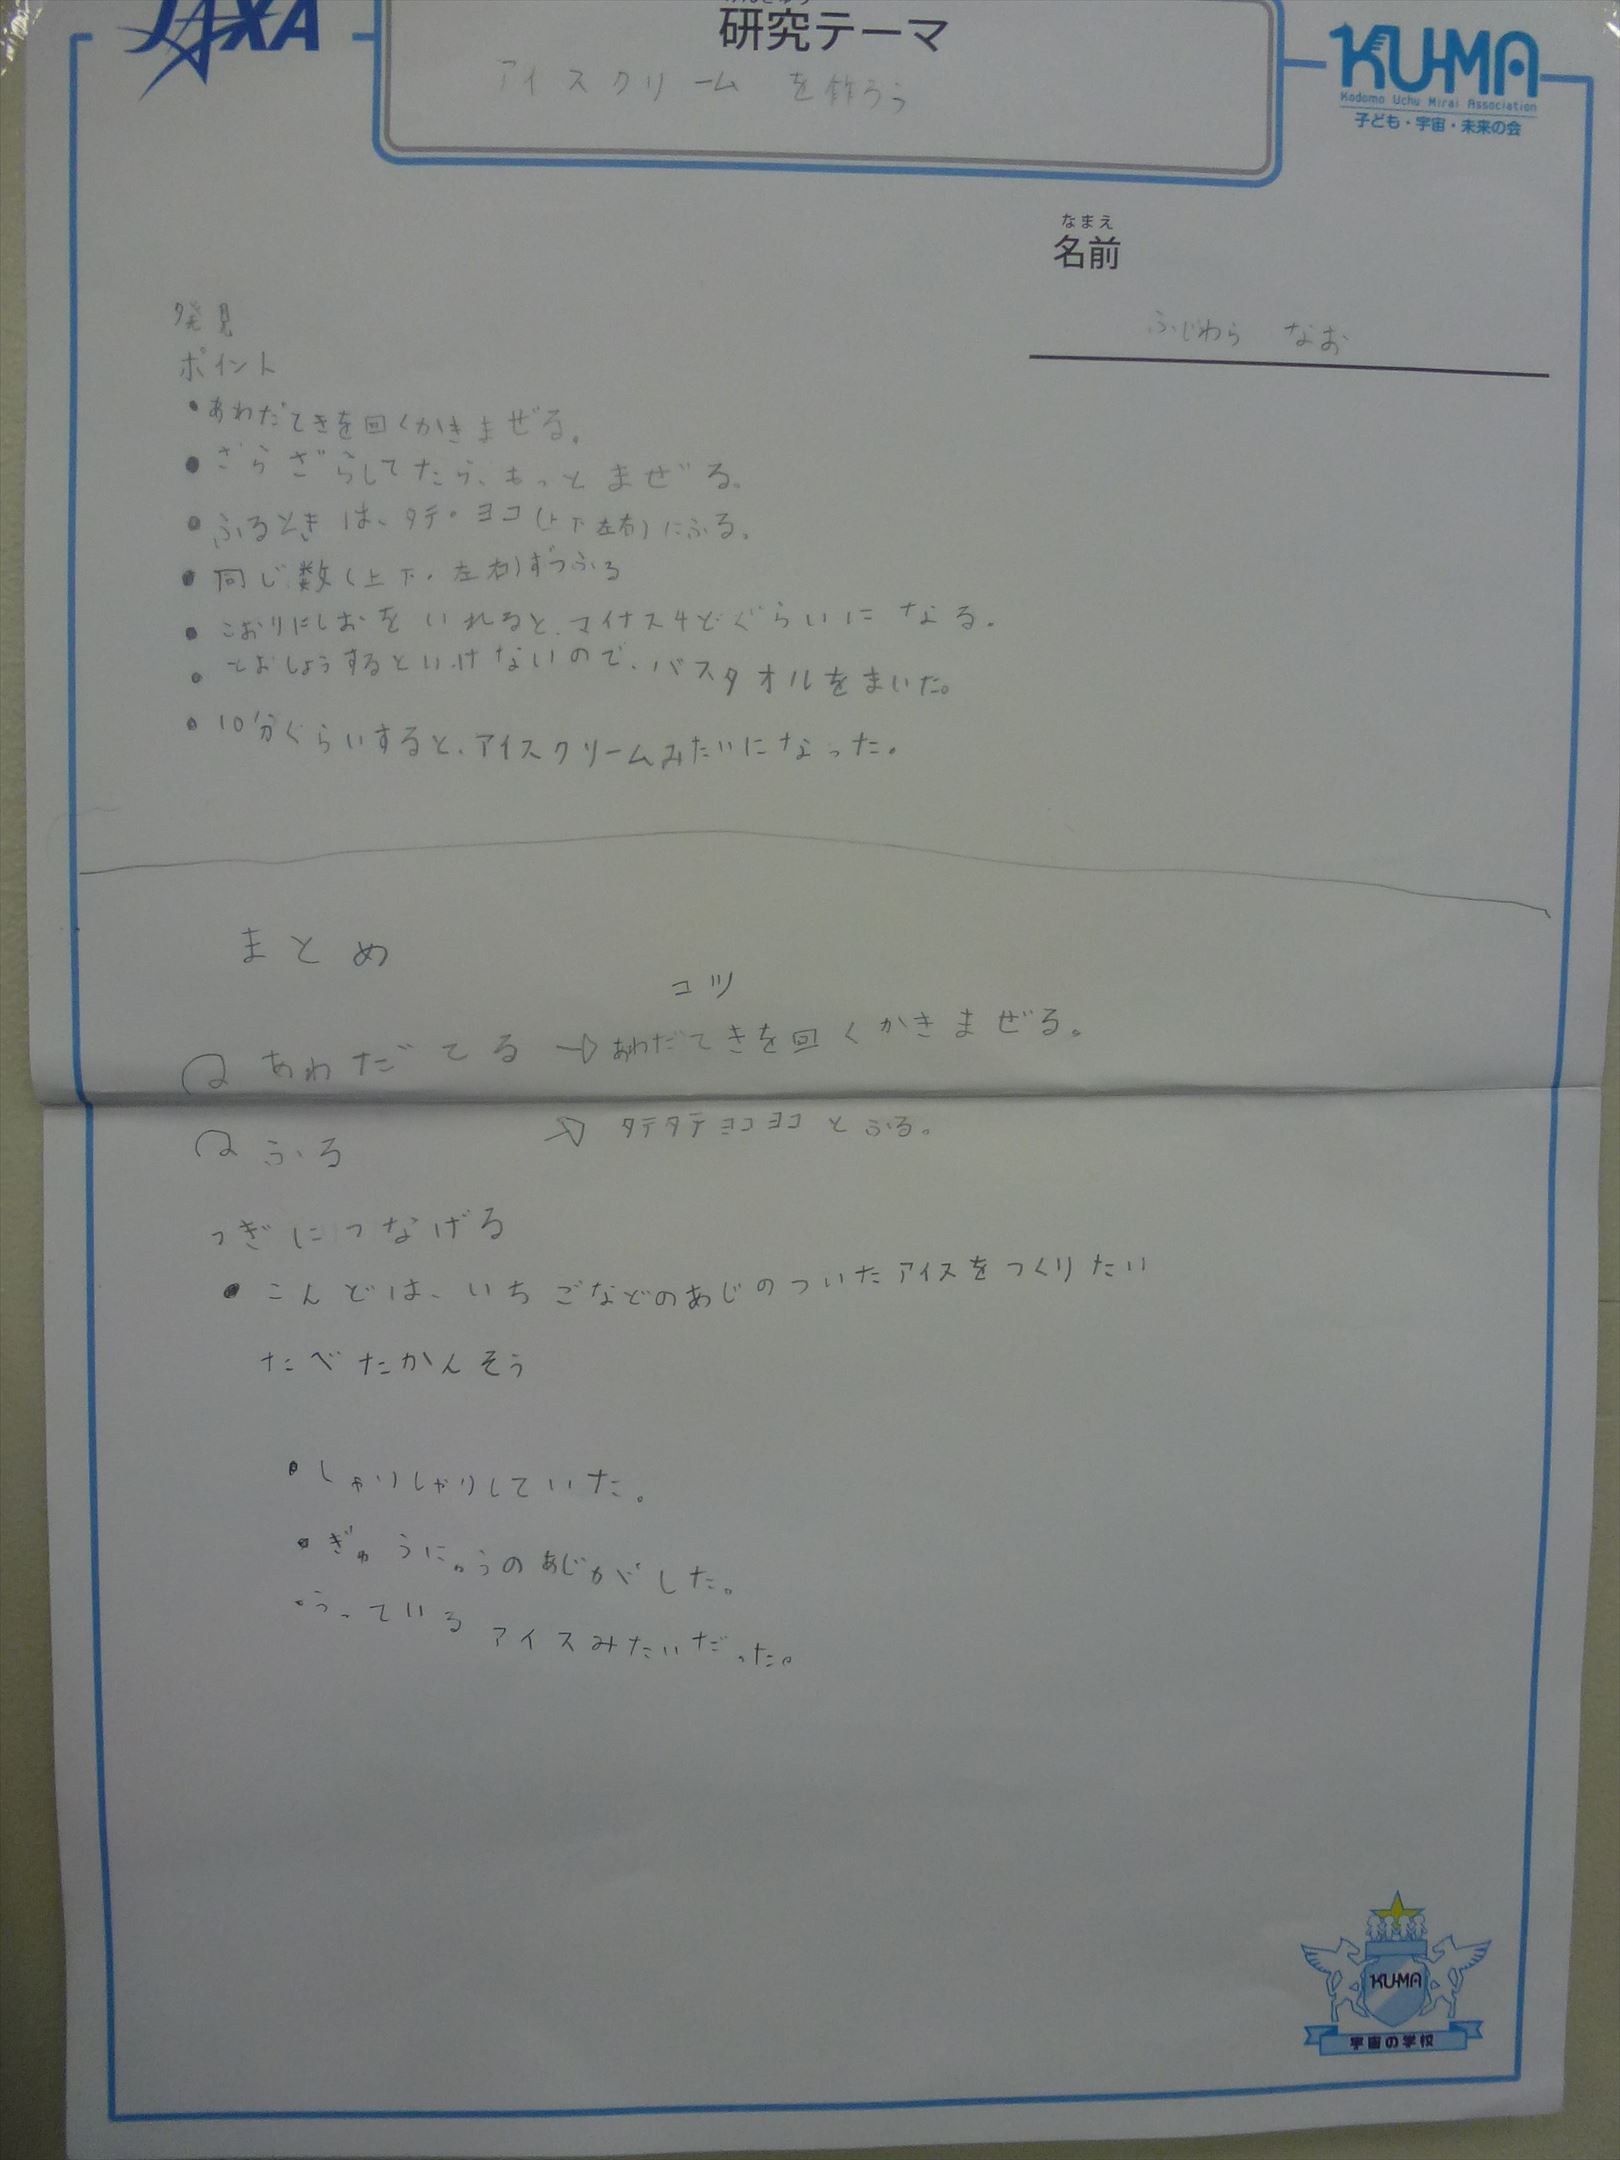 JAXA
研究テーマ
アイスクリームを作ろう
KU-MA
Kodomo Uchu Mirai Association
子ども・宇宙・未来の会
なまえ
名前
ふじわら なお
発見
ポイント
・あわだてきを回くかきまぜる。
・ざらざらしてたら、もっとまぜる。
・ふるときは、タテ・ヨコ(上下左右)にふる。
・同じ数(上下・左右)ずつふる
・こおりにしおをいれると、マイナス4どぐらいになる。
・とおしょうするといけないので、バスタオルをまいた。
・10分ぐらいすると、アイスクリームみたいになった。
まとめ
コツ
あわだてる→あわだてきを回くかきまぜる。
ふる → タテタテヨコヨコとふる。
つぎにつなげる
・こんどは、いちごなどのあじのついたアイスをつくりたい
たべたかんそう
・しゃりしゃりしていた。
・ぎゅうにゅうのあじがした。
・うっているアイスみたいだった。
KU-MA
宇宙の学校